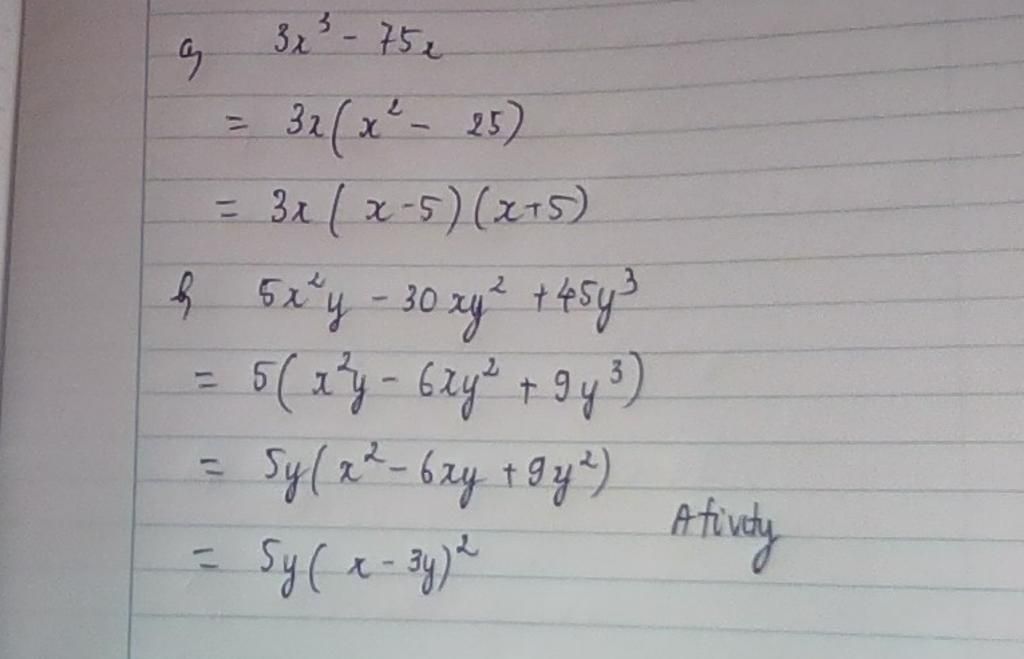 a) 3x³ - 75x
= 3x(x² - 25)
= 3x(x-5)(x+5)
b) 5x²y - 30xy² + 45y³
= 5(x²y - 6xy² + 9y³)
= 5y(x² - 6xy + 9y²)
= 5y(x - 3y)²